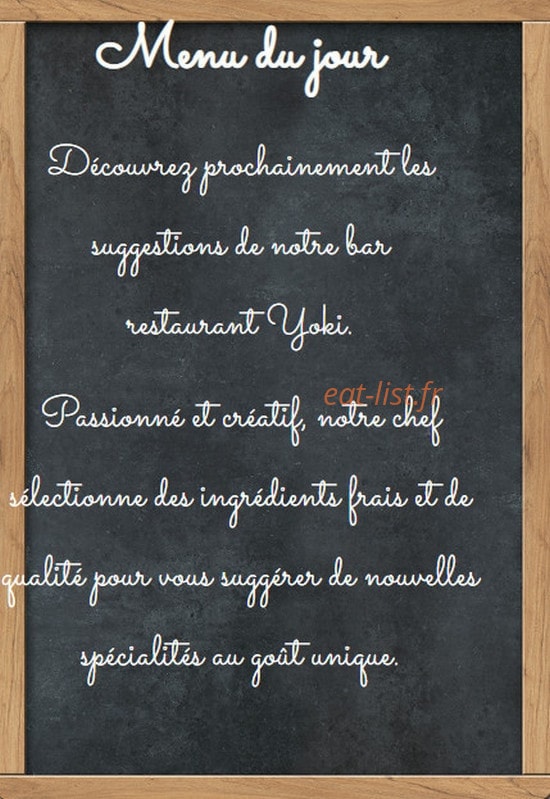 Menu du jour
Découvrez prochainement les
suggestions de notre bar
restaurant Yoki.
eat-list.fr
Passionné et créatif, notre chef
sélectionne des ingrédients frais et de
qualité pour vous suggérer de nouvelles
spécialités au goût unique.